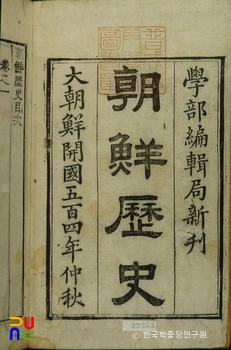 學部編輯局新刊
朝鮮歷史
大朝鮮開國五百四年仲秋
朝鮮歷史目次
卷之一
32353
한국학중앙연구원